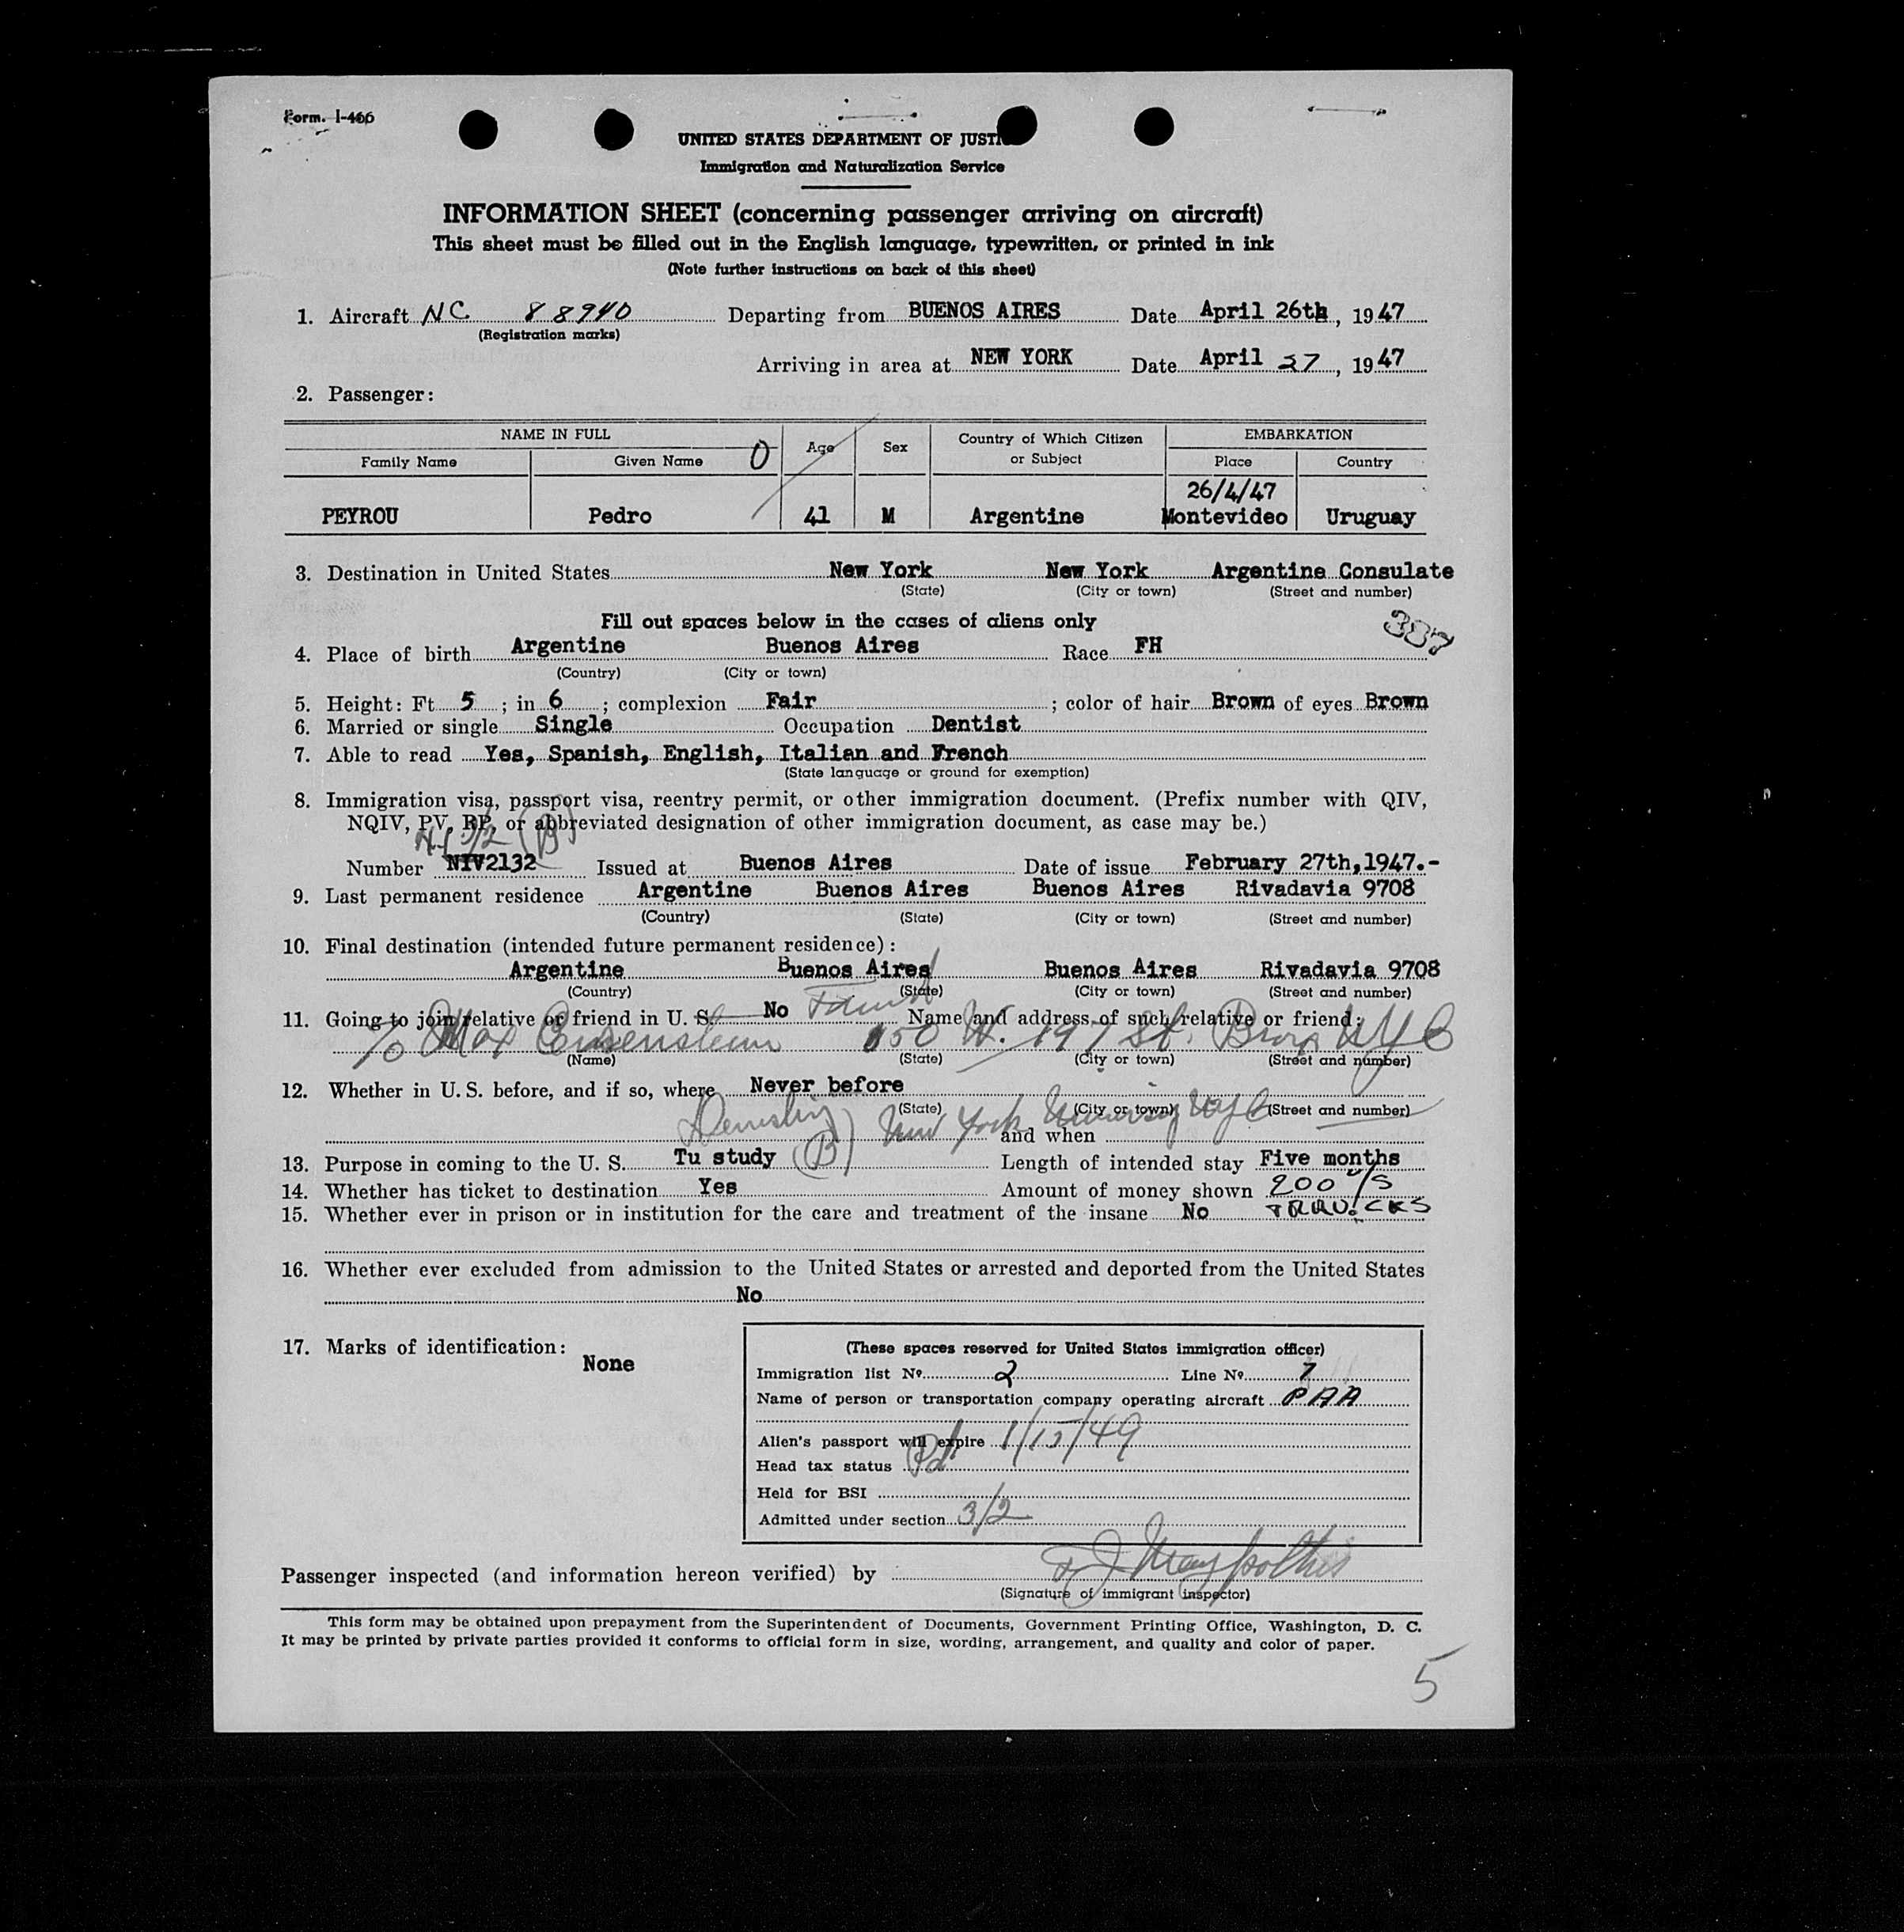 Form. I-466
UNITED STATES DEPARTMENT OF JUSTI
Immigration and Naturalization Service
INFORMATION SHEET (concerning passenger arriving on aircraft)
This sheet must be filled out in the English language, typewritten, or printed in ink
(Note further instructions on back of this sheet)
1. Aircraft NC 88940 Departing from BUENOS AIRES Date April 26th, 1947
(Registration marks)
Arriving in area at NEW YORK Date April 27, 1947
2. Passenger:
NAME IN FULL Age Sex Country of Which Citizen or Subject EMBARKATION
Family Name Given Name 0 Place Country
26/4/47
PEYROU Pedro 41 M Argentine Montevideo Uruguay
3. Destination in United States New York New York Argentine Consulate
(State) (City or town) (Street and number)
Fill out spaces below in the cases of aliens only
387
4. Place of birth Argentine Buenos Aires Race FH
(Country) (City or town)
5. Height: Ft 5 ; in 6 ; complexion Fair ; color of hair Brown of eyes Brown
6. Married or single Single Occupation Dentist
7. Able to read Yes, Spanish, English, Italian and French
(State language or ground for exemption)
8. Immigration visa, passport visa, reentry permit, or other immigration document. (Prefix number with QIV,
NQIV, PV, RP, or abbreviated designation of other immigration document, as case may be.)
3/2 (B)
Number NIV2132 Issued at Buenos Aires Date of issue February 27th,1947.-
9. Last permanent residence Argentine Buenos Aires Buenos Aires Rivadavia 9708
(Country) (State) (City or town) (Street and number)
10. Final destination (intended future permanent residence):
Argentine Buenos Aires Buenos Aires Rivadavia 9708
(Country) (State) (City or town) (Street and number)
11. Going to join relative or friend in U. S. No Friend Name and address of such relative or friend:
% Max Eisenstein 150 W. 197 St. Bronx NYC
(Name) (State) (City or town) (Street and number)
12. Whether in U. S. before, and if so, where Never before
(State) (City or town) (Street and number)
Dentistry New York University NYC
and when
13. Purpose in coming to the U. S. Tu study (B) Length of intended stay Five months
14. Whether has ticket to destination Yes Amount of money shown 200 U/S
15. Whether ever in prison or in institution for the care and treatment of the insane No TRAV. CKS
16. Whether ever excluded from admission to the United States or arrested and deported from the United States
No
17. Marks of identification:
None
(These spaces reserved for United States immigration officer)
Immigration list No. 2 Line No. 7
Name of person or transportation company operating aircraft PAA
Alien's passport will expire 1/15/49
Head tax status Pd
Held for BSI
Admitted under section 3/2
Passenger inspected (and information hereon verified) by
(Signature of immigrant inspector)
This form may be obtained upon prepayment from the Superintendent of Documents, Government Printing Office, Washington, D. C.
It may be printed by private parties provided it conforms to official form in size, wording, arrangement, and quality and color of paper.
5